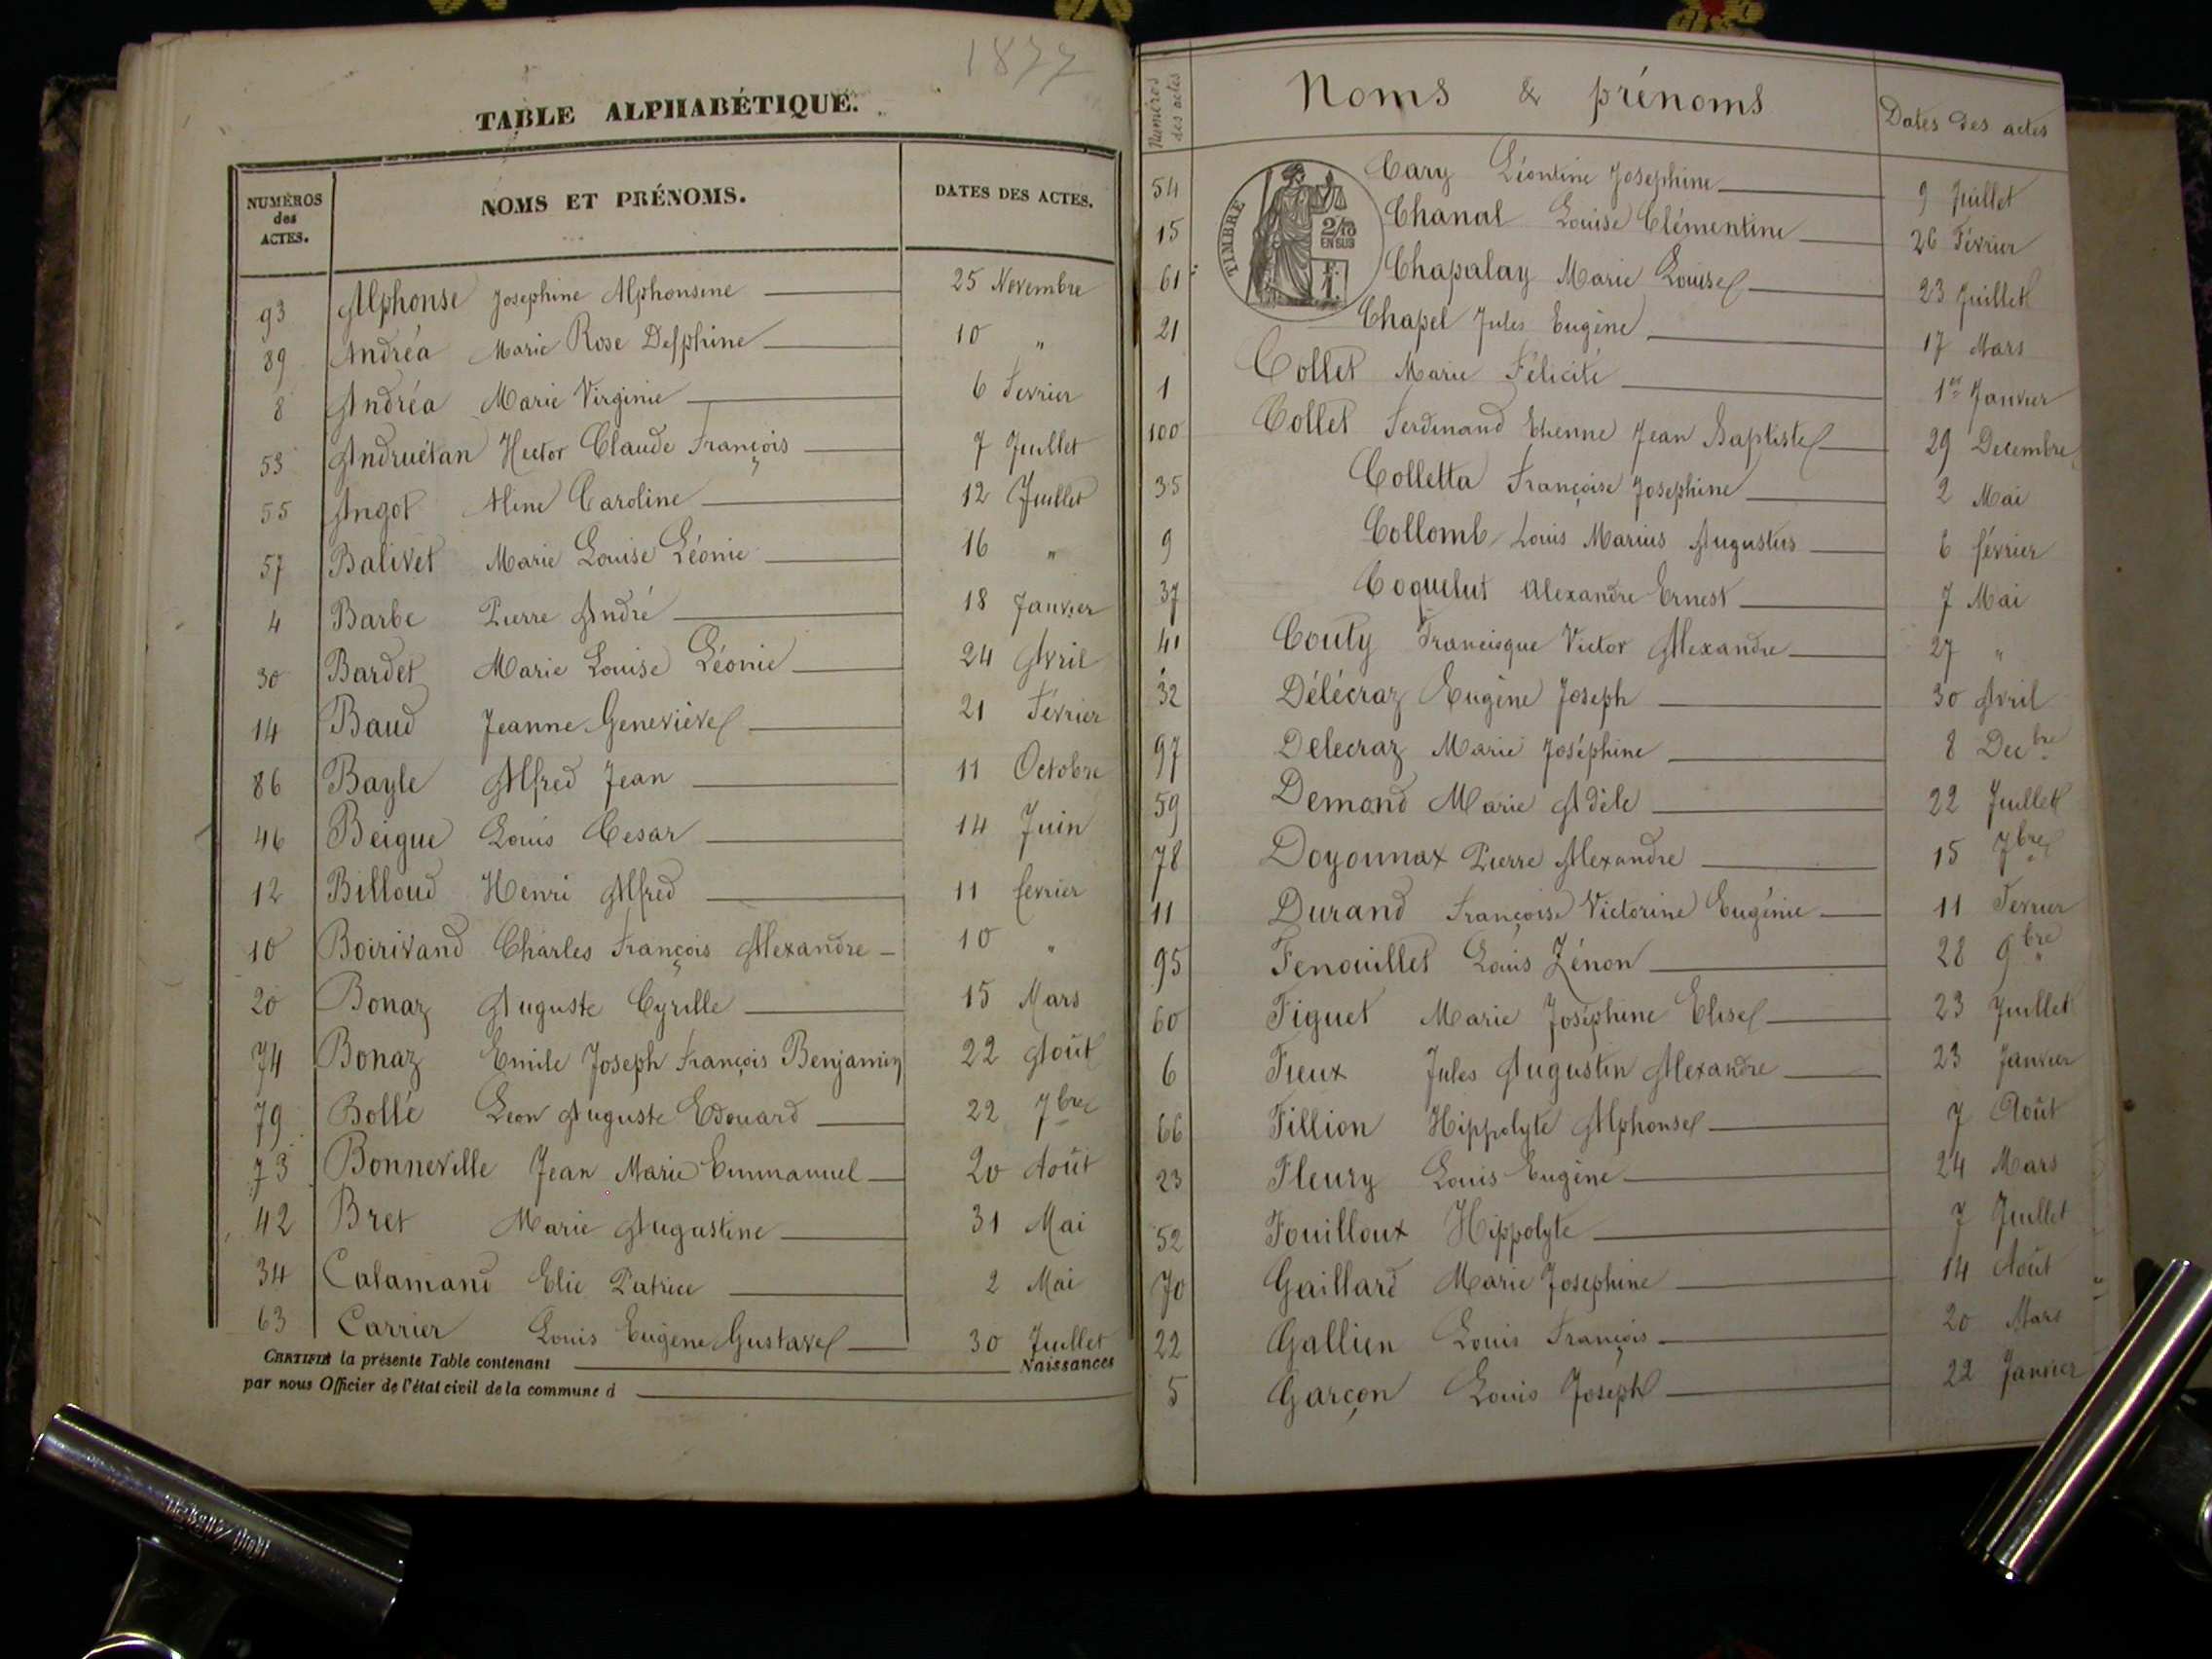 1877
TABLE ALPHABÉTIQUE.
NUMÉROS des ACTES. NOMS ET PRÉNOMS. DATES DES ACTES.
93 Alphonse Josephine Alphonsine 25 Novembre
89 Andréa Marie Rose Delphine 10 "
8 Andréa Marie Virginie 6 Fevrier
53 Andruétan Hector Claude François 7 Juillet
55 Angot Aline Caroline 12 Juillet
57 Balivet Marie Louise Léonie 16 "
4 Barbe Pierre André 18 Janvier
30 Bardet Marie Louise Léonie 24 Avril
14 Baud Jeanne Geneviève 21 Février
86 Bayle Alfred Jean 11 Octobre
46 Beigue Louis Cesar 14 Juin
12 Billoud Henri Alfred 11 fevrier
10 Boirivand Charles François Alexandre 10 "
20 Bonaz Auguste Cyrille 15 Mars
74 Bonaz Emile Joseph François Benjamin 22 Août
79 Bollé Leon Auguste Edouard 22 7bre
73 Bonneville Jean Marie Emmanuel 20 Août
42 Bret Marie Augustine 31 Mai
34 Calamand Elie Patrice 2 Mai
63 Carrier Louis Eugène Gustave 30 Juillet
CERTIFIÉ la présente Table contenant Naissances
par nous Officier de l'état civil de la commune d
Numéros des actes Noms & prénoms Dates des actes
TIMBRE
2/10
EN SUS
1 F.
54 Cary Léontine Josephine 9 Juillet
15 Chanal Louise Clémentine 26 Février
61 Chapalay Marie Louise 23 Juillet
21 Chapel Jules Eugène 17 Mars
1 Collet Marie Félicité 1er Janvier
100 Collet Ferdinand Etienne Jean Baptiste 29 Decembre
35 Colletta Françoise Josephine 2 Mai
9 Collomb Louis Marius Augustus 6 février
37 Coquelut Alexandre Ernest 7 Mai
41 Couty Francisque Victor Alexandre 27 "
32 Délécraz Eugène Joseph 30 Avril
97 Delecraz Marie Joséphine 8 Decbre
59 Demond Marie Adèle 22 Juillet
78 Doyonnax Pierre Alexandre 15 7bre
11 Durand Françoise Victorine Eugénie 11 Fevrier
95 Fenouillet Louis Zénon 28 9bre
60 Figuet Marie Joséphine Elise 23 Juillet
6 Fieux Jules Augustin Alexandre 23 Janvier
66 Fillion Hippolyte Alphonse 7 Août
23 Fleury Louis Eugène 24 Mars
52 Fouilloux Hippolyte 7 Juillet
70 Gaillard Marie Josephine 14 Août
22 Gallien Louis François 20 Mars
5 Garçon Louis Joseph 22 Janvier